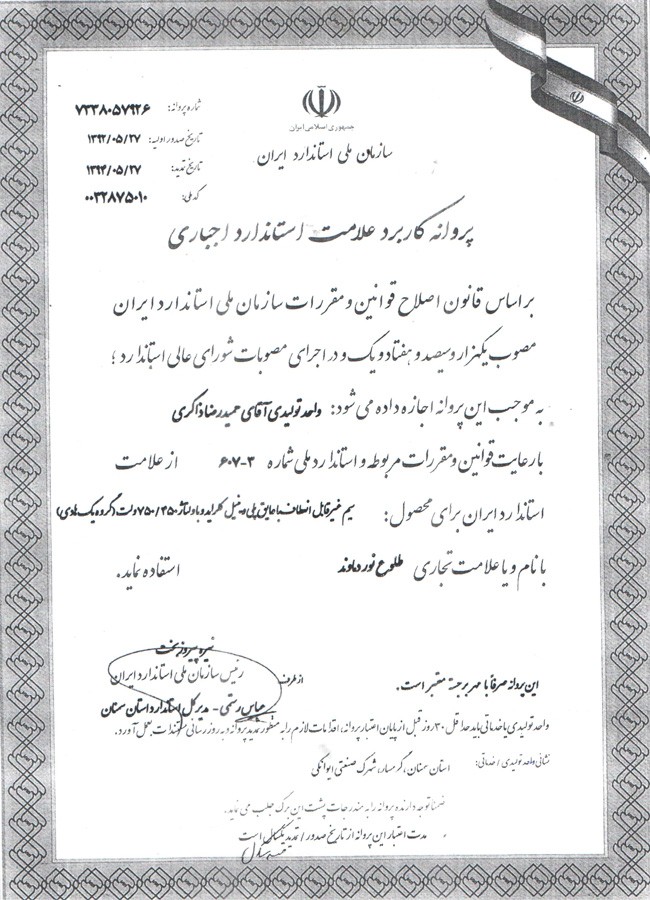 جمهوری اسلامی ایران
سازمان ملی استاندارد ایران
شماره پروانه: ۷۳۳۸۰۵۷۹۲۶
تاریخ صدور اولیه: ۱۳۹۲/۰۵/۲۷
تاریخ تمدید: ۱۳۹۴/۰۵/۲۷
کد ملی: ۰۰۳۲۸۷۵۰۱۰
پروانه کاربرد علامت استاندارد اجباری
بر اساس قانون اصلاح قوانین و مقررات سازمان ملی استاندارد ایران
مصوب یکهزار و سیصد و هفتاد و یک و در اجرای مصوبات شورای عالی استاندارد ؛
به موجب این پروانه اجازه داده می شود: واحد تولیدی آقای حمیدرضا ذاکری
با رعایت قوانین و مقررات مربوطه و استاندارد ملی شماره ۳-۶۰۷ از علامت
استاندارد ایران برای محصول: سیم غیرقابل انعطاف با عایق پلی وینیل کلراید و با ولتاژ ۷۵۰/۴۵۰ ولت (گروه یک هادی)
با نام و یا علامت تجاری طلوع نور دماوند استفاده نماید.
نیره پیروزبخت
رئیس سازمان ملی استاندارد ایران
این پروانه صرفا با مهر برجسته معتبر است.
از طرف
عباس رستمی - مدیر کل استاندارد استان سمنان
واحد تولیدی یا خدماتی باید حداقل ۳۰ روز قبل از پایان اعتبار پروانه، اقدامات لازم را به منظور تمدید پروانه و به روز رسانی مستندات بعمل آورد.
نشانی واحد تولیدی / خدماتی: استان سمنان، گرمسار، شهرک صنعتی ایوانکی
ضمنا توجه دارنده پروانه را به مندرجات پشت این برگ جلب می نماید.
مدت اعتبار این پروانه از تاریخ صدور / تمدید یکسال است